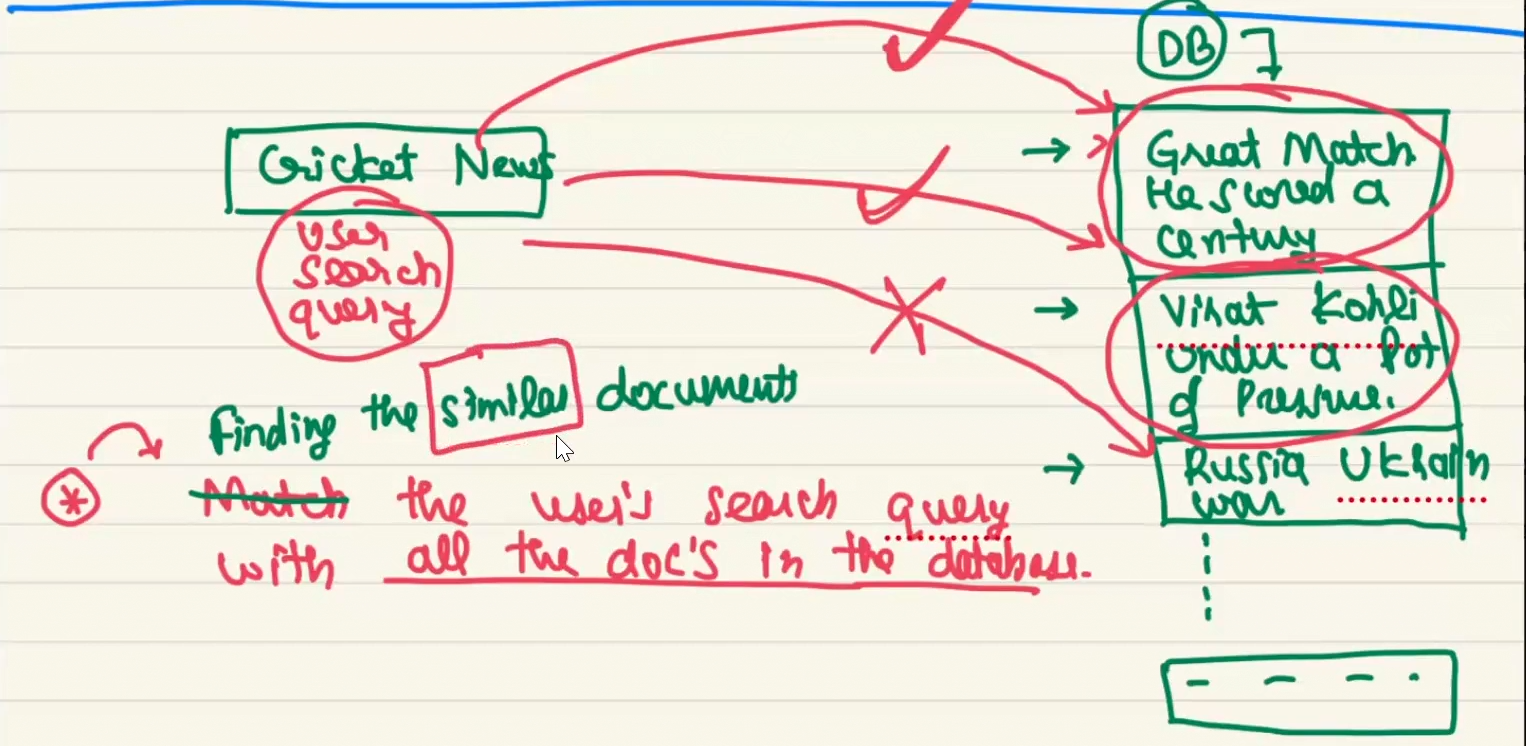 DB
Cricket News
User
search
query
Great Match
He scored a
century
Virat Kohli
under a Pot
of Pressure.
Russia Ukrain
war
finding the similar documents
Match the user's search query
with all the doc's in the database.